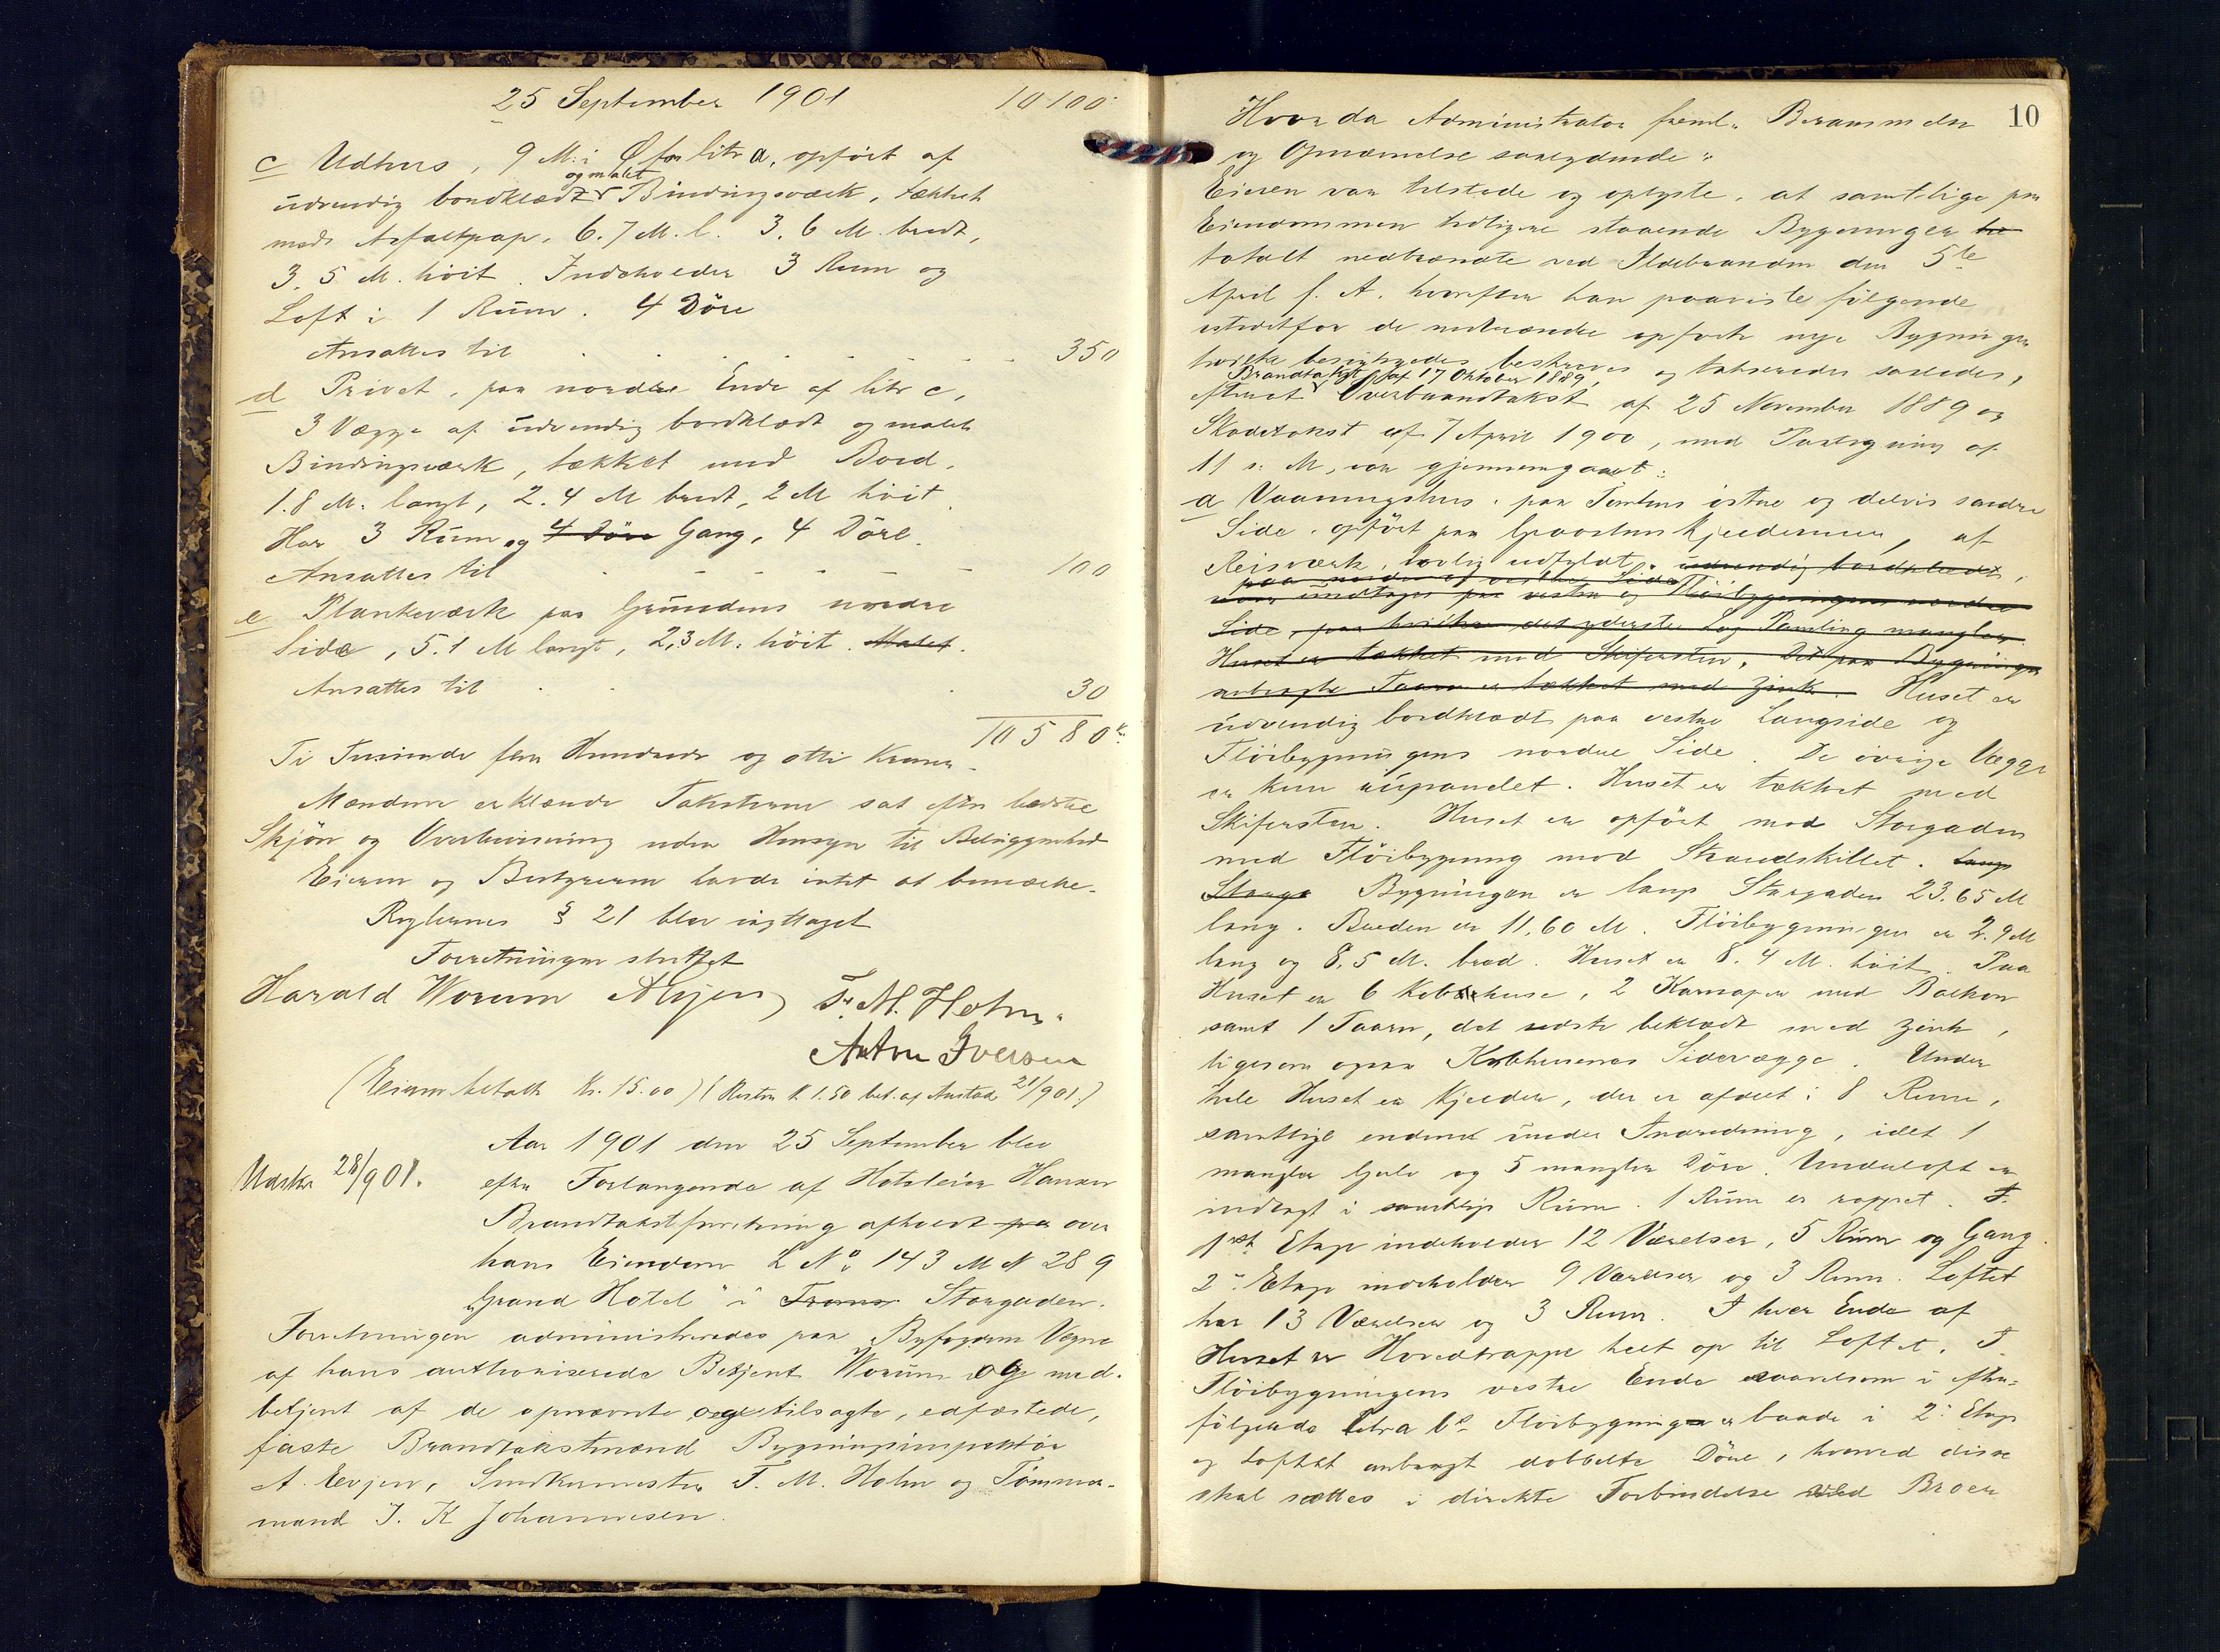 25 September 1901 10100
c Udhus, 9 M. i Ø for litr a, opført af
udvendig bordklædt og malet Bindingsværk, tækket
med Asfaltpap, 6.7 M. l. 3.6 M. bredt,
3.5 M. höit. Indeholder 3 Rum og
Loft i 1 Rum. 4 Döre
Ansattes til 350
d Privet, paa nordre Ende af litr c,
3 Vægge af udvendig bordklædt og malet
Bindingsværk, tækket med Bord.
1.8 M. langt, 2.4 M bredt, 2 M höit.
Har 3 Rum og 4 Döre Gang, 4 Döre.
Ansattes til 100
e Plankeværk paa Grundens nordre
Side, 5.1 M langt, 2,3 M. höit. Malet.
Ansattes til 30
10580 kr.
Ti Tusinde fem Hundrede og otti Kroner.
Mændene erklærede Taksterne sat efter bedste
Skjön og Overbevisning uden Hensyn til Beliggenhed
Eieren og Bestyreren havde intet at bemærke.
Reglernes § 21 blev iagttaget
Forretningen sluttet
Harald Worum A Evjen F. M. Holm.
Anton Iversen
(Eieren betalte Kr. 15.00) (Resten K 1.50 bet. af Anstad 21/901.)
Aar 1901 den 25 September blev
Udskr 28/901. efter Forlangende af Hoteleier Hansen
Brandtakstforretning afholdt paa over
hans Eiendom L No 143 M N 289
"Grand Hotel" i Tromsø Storgaden.
Forretningen administreredes paa Byfogdens Vegne
af hans authoriserede Betjent Worum og med-
betjent af de opnævnte og tilsagte, edfæstede,
faste Brandtakstmænd Bygningsinspektör
A. Evjen, Snedkermester F. M. Holm og Tömmer-
mand J. K Johannesen.
10
Hvor da Administrator freml. Berammelse
og Opnævnelse saalydende:
Eieren var tilstede og oplyste, at samtlige paa
Eiendommen tidligere staaende Bygninger be
totalt nedbrændte ved Ildebranden den 5te
April f. A. hvorefter han paaviste følgende
istedetfor de nedbrændte opførte nye Bygninger
hvilke besigtigedes, beskreves og takseredes saaledes,
efterat Brandtakst af 17 Oktober 1889, Overbrandtakst af 25 November 1889 og
Skadetakst af 7 April 1900, med Paategning af
11 s. M, var gjennemgaaet:
a Vaaningshus, paa Tomtens östre og delvis søndre
Side, opfört paa Graastens Kjeldermur, af
Reisværk, lovlig udfyldt, udvendig bordklædt,
paa nordre og vestre Side
undtages paa vestre og Flöibygningens nordre
Side, paa hvilken det yderste Lag Panling mangler.
Huset er tækket med Skifersten. Det paa Bygningen
anbragte Taarn er tækket med Zink. Huset er
udvendig bordklædt paa vestre Langside og
Flöibygningens nordre Side. De övrige Vægge
er kun upanelet. Huset er tækket med
Skifersten. Huset er opfört mod Storgaden
med Flöibygning mod Strandskillet. Langs
Storga Bygningen er langs Storgaden 23.65 M
lang. Bredden er 11,60 M. Flöibygningen er 2.9 M
lang og 8,5 M. bred. Huset er 8.4 M. höit. Paa
Huset er 6 Kobbhuse, 2 Karnaper med Balkon
samt 1 Taarn, det sidste beklædt med Zink,
ligesom ogsaa Kobbhusenes Sidevægge. Under
hele Huset er Kjelder, der er afdelt i 8 Rum,
samtlige endnu under Indredning, idet 1
mangler Gulv og 5 mangler Döre. Underloft er
indlagt i samtlige Rum. 1 Rum er rappet. I
1ste Etage indeholder 12 Værelser, 5 Rum og Gang.
2. Etage indeholder 9 Værelser og 3 Rum. Loftet
har 13 Værelser og 3 Rum. I hver Ende af
Huset er Hovedtrappe helt op til Loftet. I
Flöibygningens vestre Ende saavelsom i efter-
følgende Litra b's Flöibygning er baade i 2. Etage
og Loftet anbragt dobbelte Döre, hvorved disse
skal sættes i direkte Forbindelse ved Broen